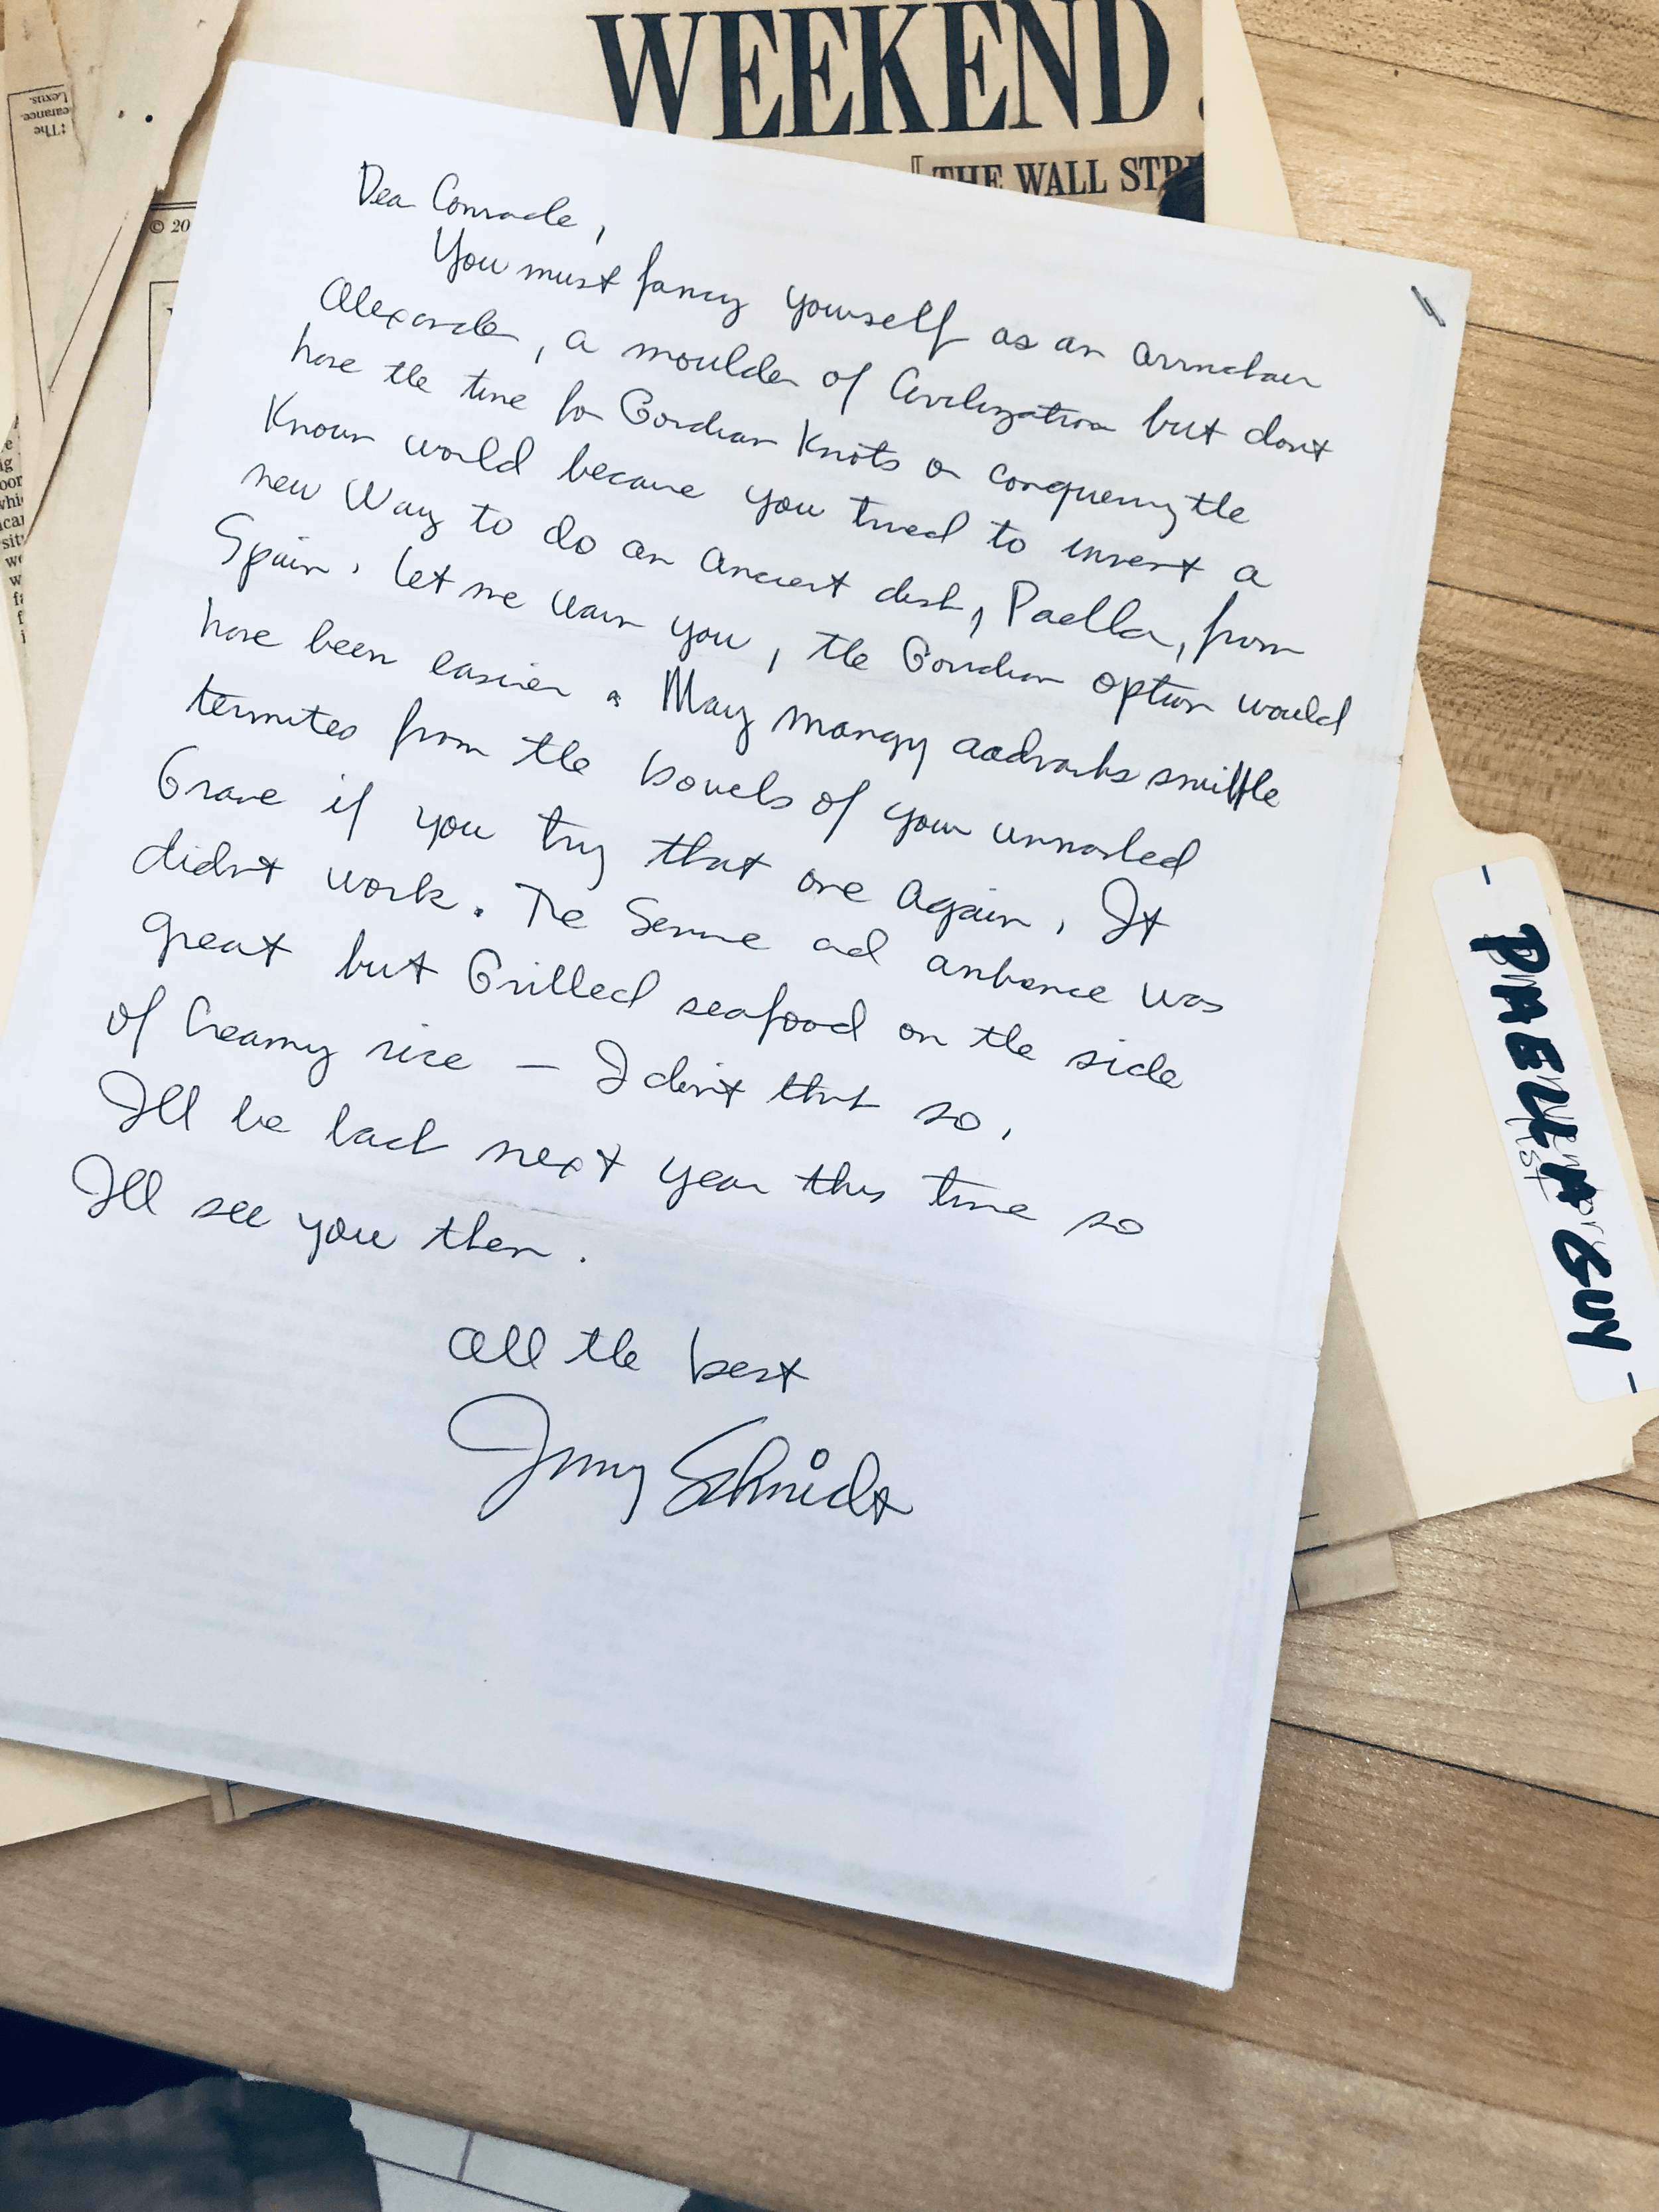 WEEKEND
THE WALL
© 20
Lexus.
earance.
:The
Dear Comrade,
You must fancy yourself as an armchair
Alexander, a moulder of Civilization but don't
have the time for Gordian Knots or conquering the
Known world because you tried to invent a
new way to do an ancient dish, Paella, from
Spain. Let me warn you, the Gordian option would
have been easier. May mangy aadvarks sniffle
termites from the bowels of your unmarked
Grave if you try that one again. It
didn't work. The Service and ambience was
great but Grilled seafood on the side
of Creamy rice — I don't think so.
I'll be back next year this time so
I'll see you then.
All the best
Jerry Schmidt
PAELLA GUY